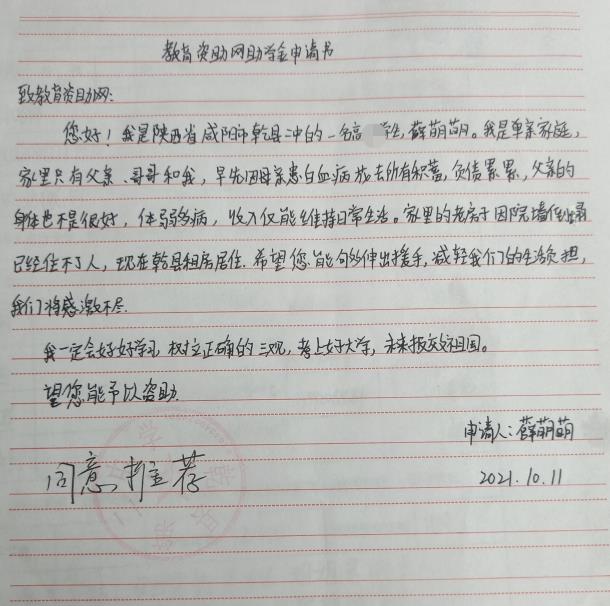 教育资助网助学金申请书
致教育资助网:
您好！我是陕西省咸阳市乾县二中的一名高 学生,薛萌萌。我是单亲家庭,
家里只有父亲、哥哥和我，早先因母亲患白血病放去所有积蓄,负债累累，父亲的
身体也不是很好，体弱多病，收入仅能维持日常生活。家里的老房子因院墙
已经住不了人，现在乾县租房居住.希望您能够伸出援手,减轻我们的生活负担,
我们将感激不尽.
我一定会好好学习,树立正确的三观，考上好大学，未来报效祖国。
望您能予以资助.
申请人:薛萌萌
同意推荐
2021.10.11